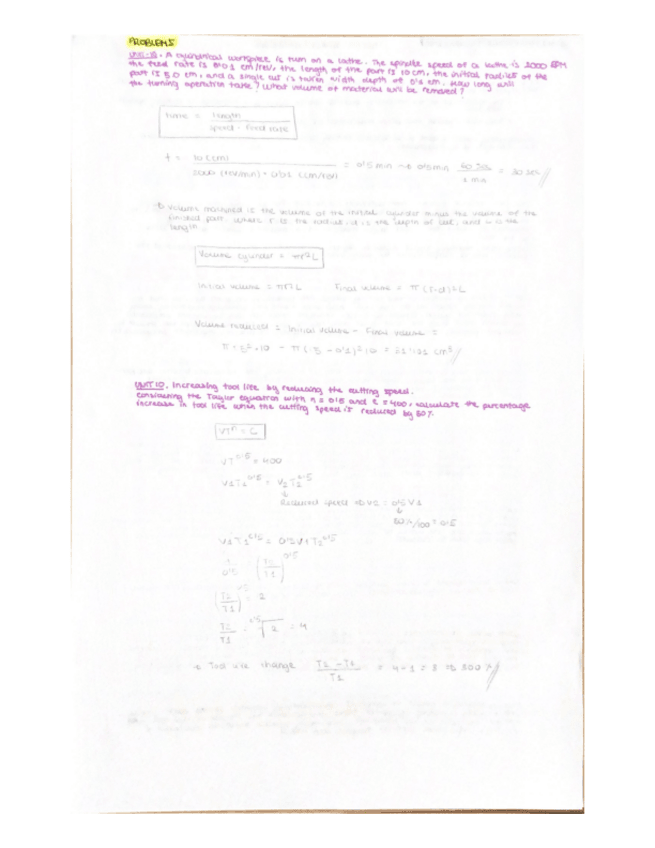 PROBLEMS
A cylindrical workpiece is turn on a lathe. The spindle speed of a lathe is 2000 RPM
the feed rate is 0'01 cm/rev, the length of the part is 10 cm, the initial radius of the
part is 5.0 cm, and a single cut is taken width depth of cm. How long will
the turning operation take? What volume of material will be removed?
time = length
speed · feed rate
t = 10 (cm)
(rev/min) · (cm/rev) = 0'5 min → 0'5 min 60 sec = 30 sec
1 min
→ Volume machined is the volume of the initial cylinder minus the volume of the
finished part, where r is the radius, d is the depth of cut, and the
length
Volume cylinder = πr²L
Initial volume = πr²L Final volume = π(r-d)²L
Volume = Initial volume - Final volume =
π · 5² · 10 - π(5 - 0'1)² 10 = cm³
UNIT 10. Increasing tool life by reducing the cutting speed.
Considering the Taylor equation with n = 0'5 and C = 400, calculate the percentage
increase in tool life when the cutting speed is reduced by 50%.
VTⁿ = C
VT^0'5 = 400
V1T1^0'5 = V2T2^0'5
Reduced speed → V2 = 0'5 V1
50%/100 = 0'5
V1T1^0'5 = 0'5V1T2^0'5
1
0'5 (T2
T1)^0'5
(T2
T1)^0'5 = 2
T2
T1 = 0'5√2 = 4
→ Tool life change T2 - T1
T1 = 4 - 1 = 3 → 300%